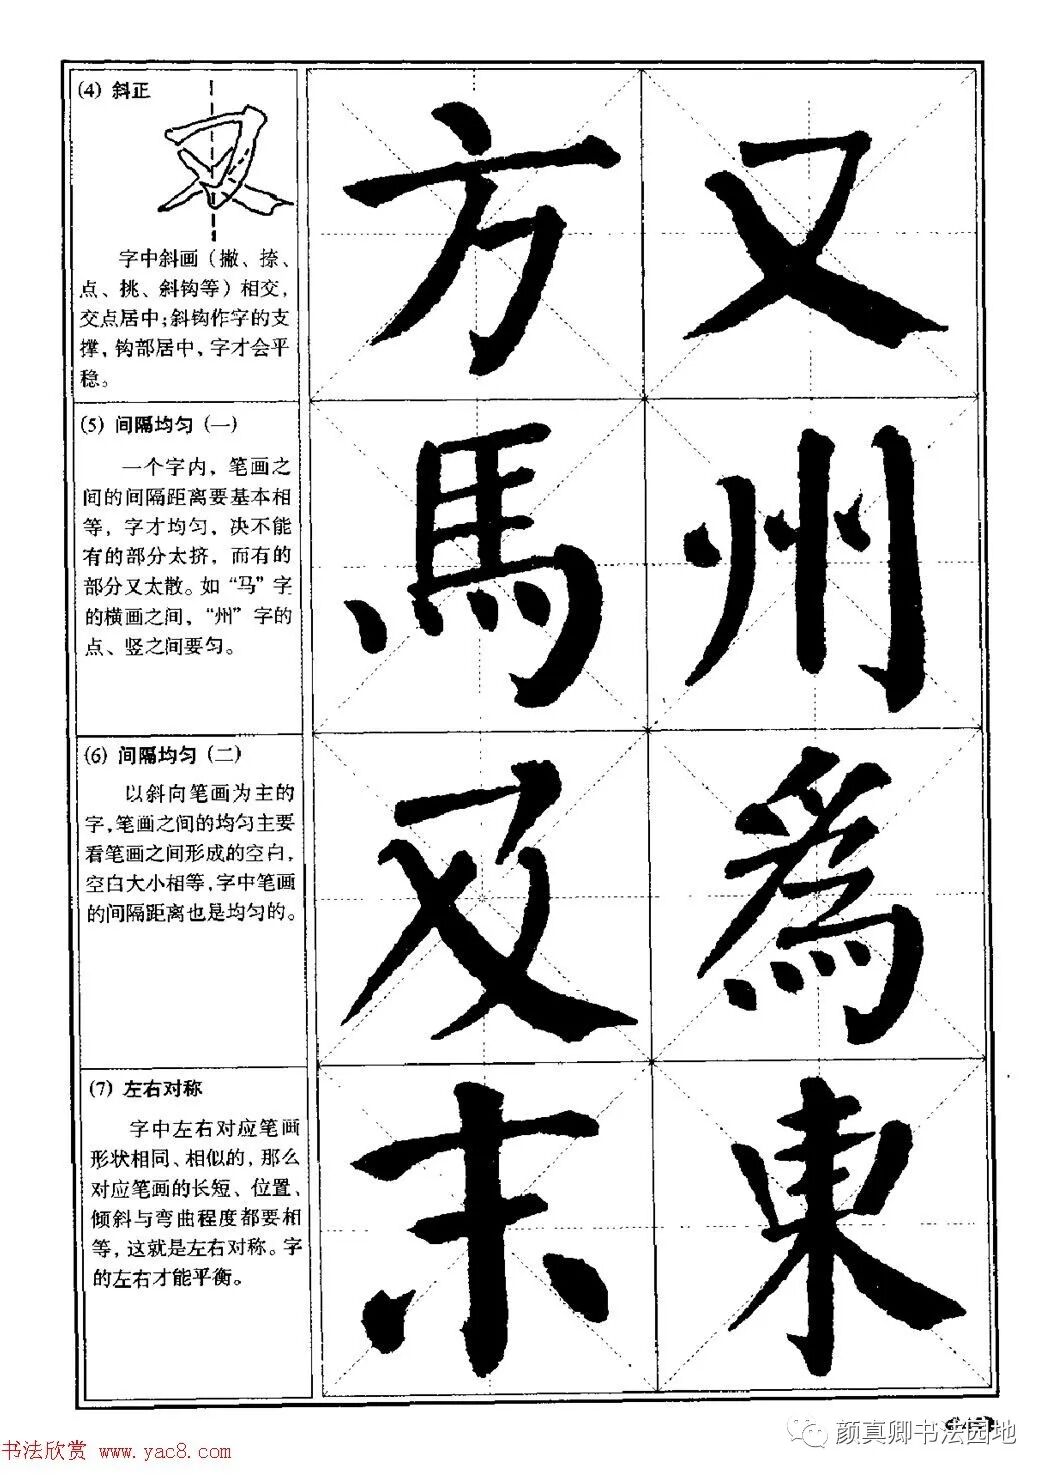 (4) 斜正
字中斜画（撇、捺、
点、挑、斜钩等）相交，
交点居中；斜钩作字的支
撑，钩部居中，字才会平
稳。
方 又
(5) 间隔均匀（一）
一个字内，笔画之
间的间隔距离要基本相
等，字才均匀，决不能
有的部分太挤，而有的
部分又太散。如“马”字
的横画之间，“州”字的
点、竖之间要匀。
馬 州
(6) 间隔均匀（二）
以斜向笔画为主的
字，笔画之间的均匀主要
看笔画之间形成的空白，
空白大小相等，字中笔画
的间隔距离也是均匀的。
及 為
(7) 左右对称
字中左右对应笔画
形状相同、相似的，那么
对应笔画的长短、位置、
倾斜与弯曲程度都要相
等，这就是左右对称。字
的左右才能平衡。
末 東
书法欣赏 www.yac8.com
颜真卿书法园地